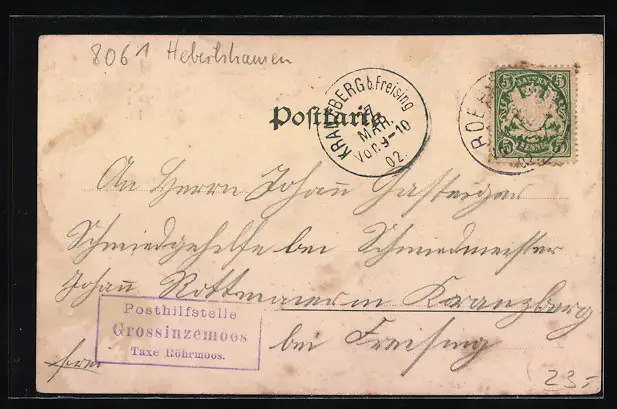 8061 Hebertshausen
Postkarte
KRANZBERG b. Freising
7
MÄR.
Vor. 9-10
02.
5 BAYERN 5
5 PFENNIG 5
An Herrn Johann Gasteiger
Schmiedgehilfe bei Schmiedmeister
Johann Rottmaier in Kranzberg
bei Freising
Posthilfstelle
Grossinzemoos
Taxe Röhrmoos.
frei
23.-